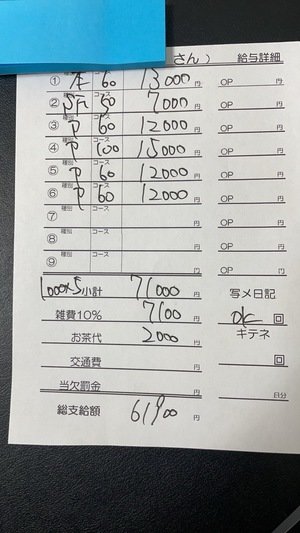 さん） 給与詳細
① 本 コース 60 13000 円 OP 円
② 種別 コース 50 7000 円 OP 円
③ 種別 P コース 60 12000 円 OP 円
④ 種別 P コース 100 15000 円 OP 円
⑤ 種別 P コース 60 12000 円 OP 円
⑥ 種別 P コース 60 12000 円 OP 円
⑦ 種別 コース 円 OP 円
⑧ 種別 コース 円 OP 円
⑨ 種別 コース 円 OP 円
1000×5 小計 71000 円 写メ日記
雑費10% 7100 円 ok 回
お茶代 2000 円 キテネ
交通費 円 回
当欠罰金 円 日分
総支給額 61900 円